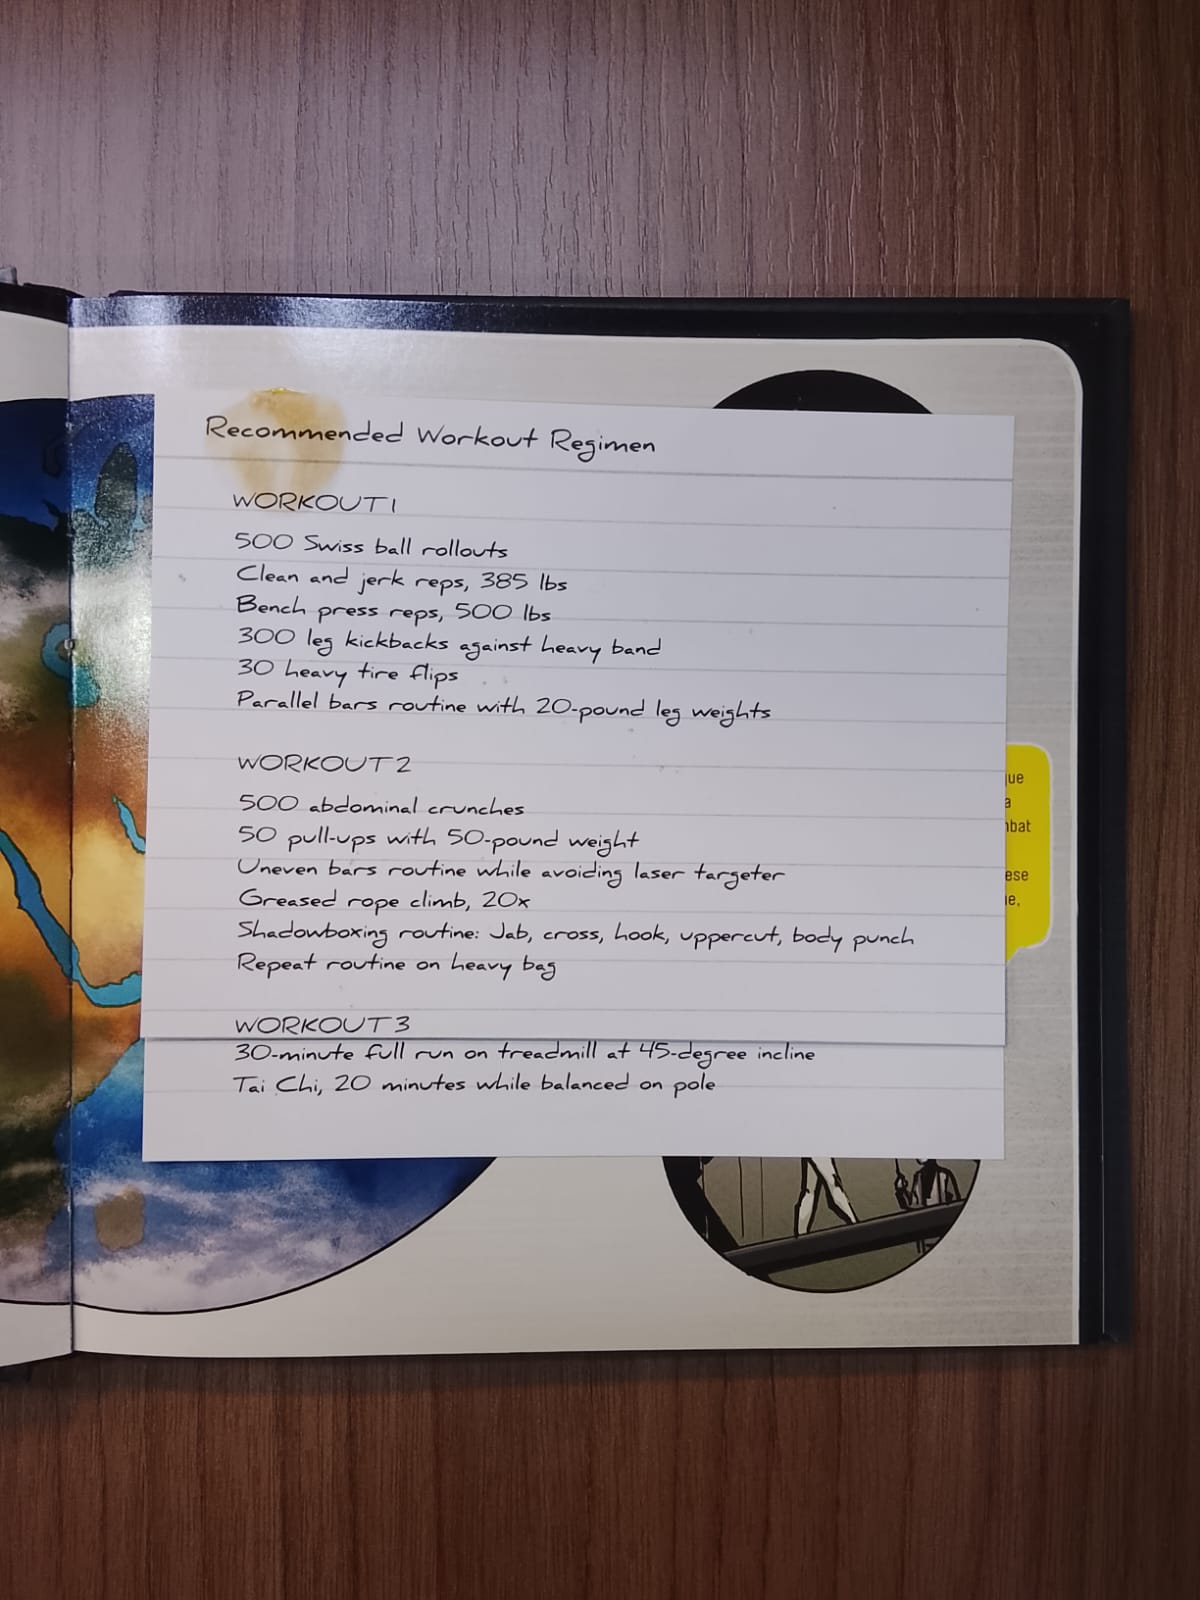 Recommended Workout Regimen
WORKOUT 1
500 Swiss ball rollouts
Clean and jerk reps, 385 lbs
Bench press reps, 500 lbs
300 leg kickbacks against heavy band
30 heavy tire flips
Parallel bars routine with 20-pound leg weights
WORKOUT 2
500 abdominal crunches
50 pull-ups with 50-pound weight
Uneven bars routine while avoiding laser targeter
Greased rope climb, 20x
Shadowboxing routine: Jab, cross, hook, uppercut, body punch
Repeat routine on heavy bag
WORKOUT 3
30-minute full run on treadmill at 45-degree incline
Tai Chi, 20 minutes while balanced on pole